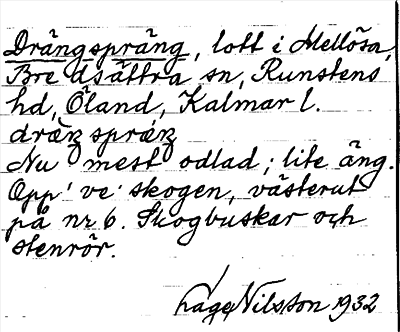 Drängspräng, lott i Mellösa,
Bredsättra sn, Runstens
hd, Öland, Kalmar l.
dräŋspräŋ
Nu mest odlad; lite äng.
Opp' ve' skogen, västerut
på nr 6. Skogbuskar och
stenrör.
Lage Nilsson 1932